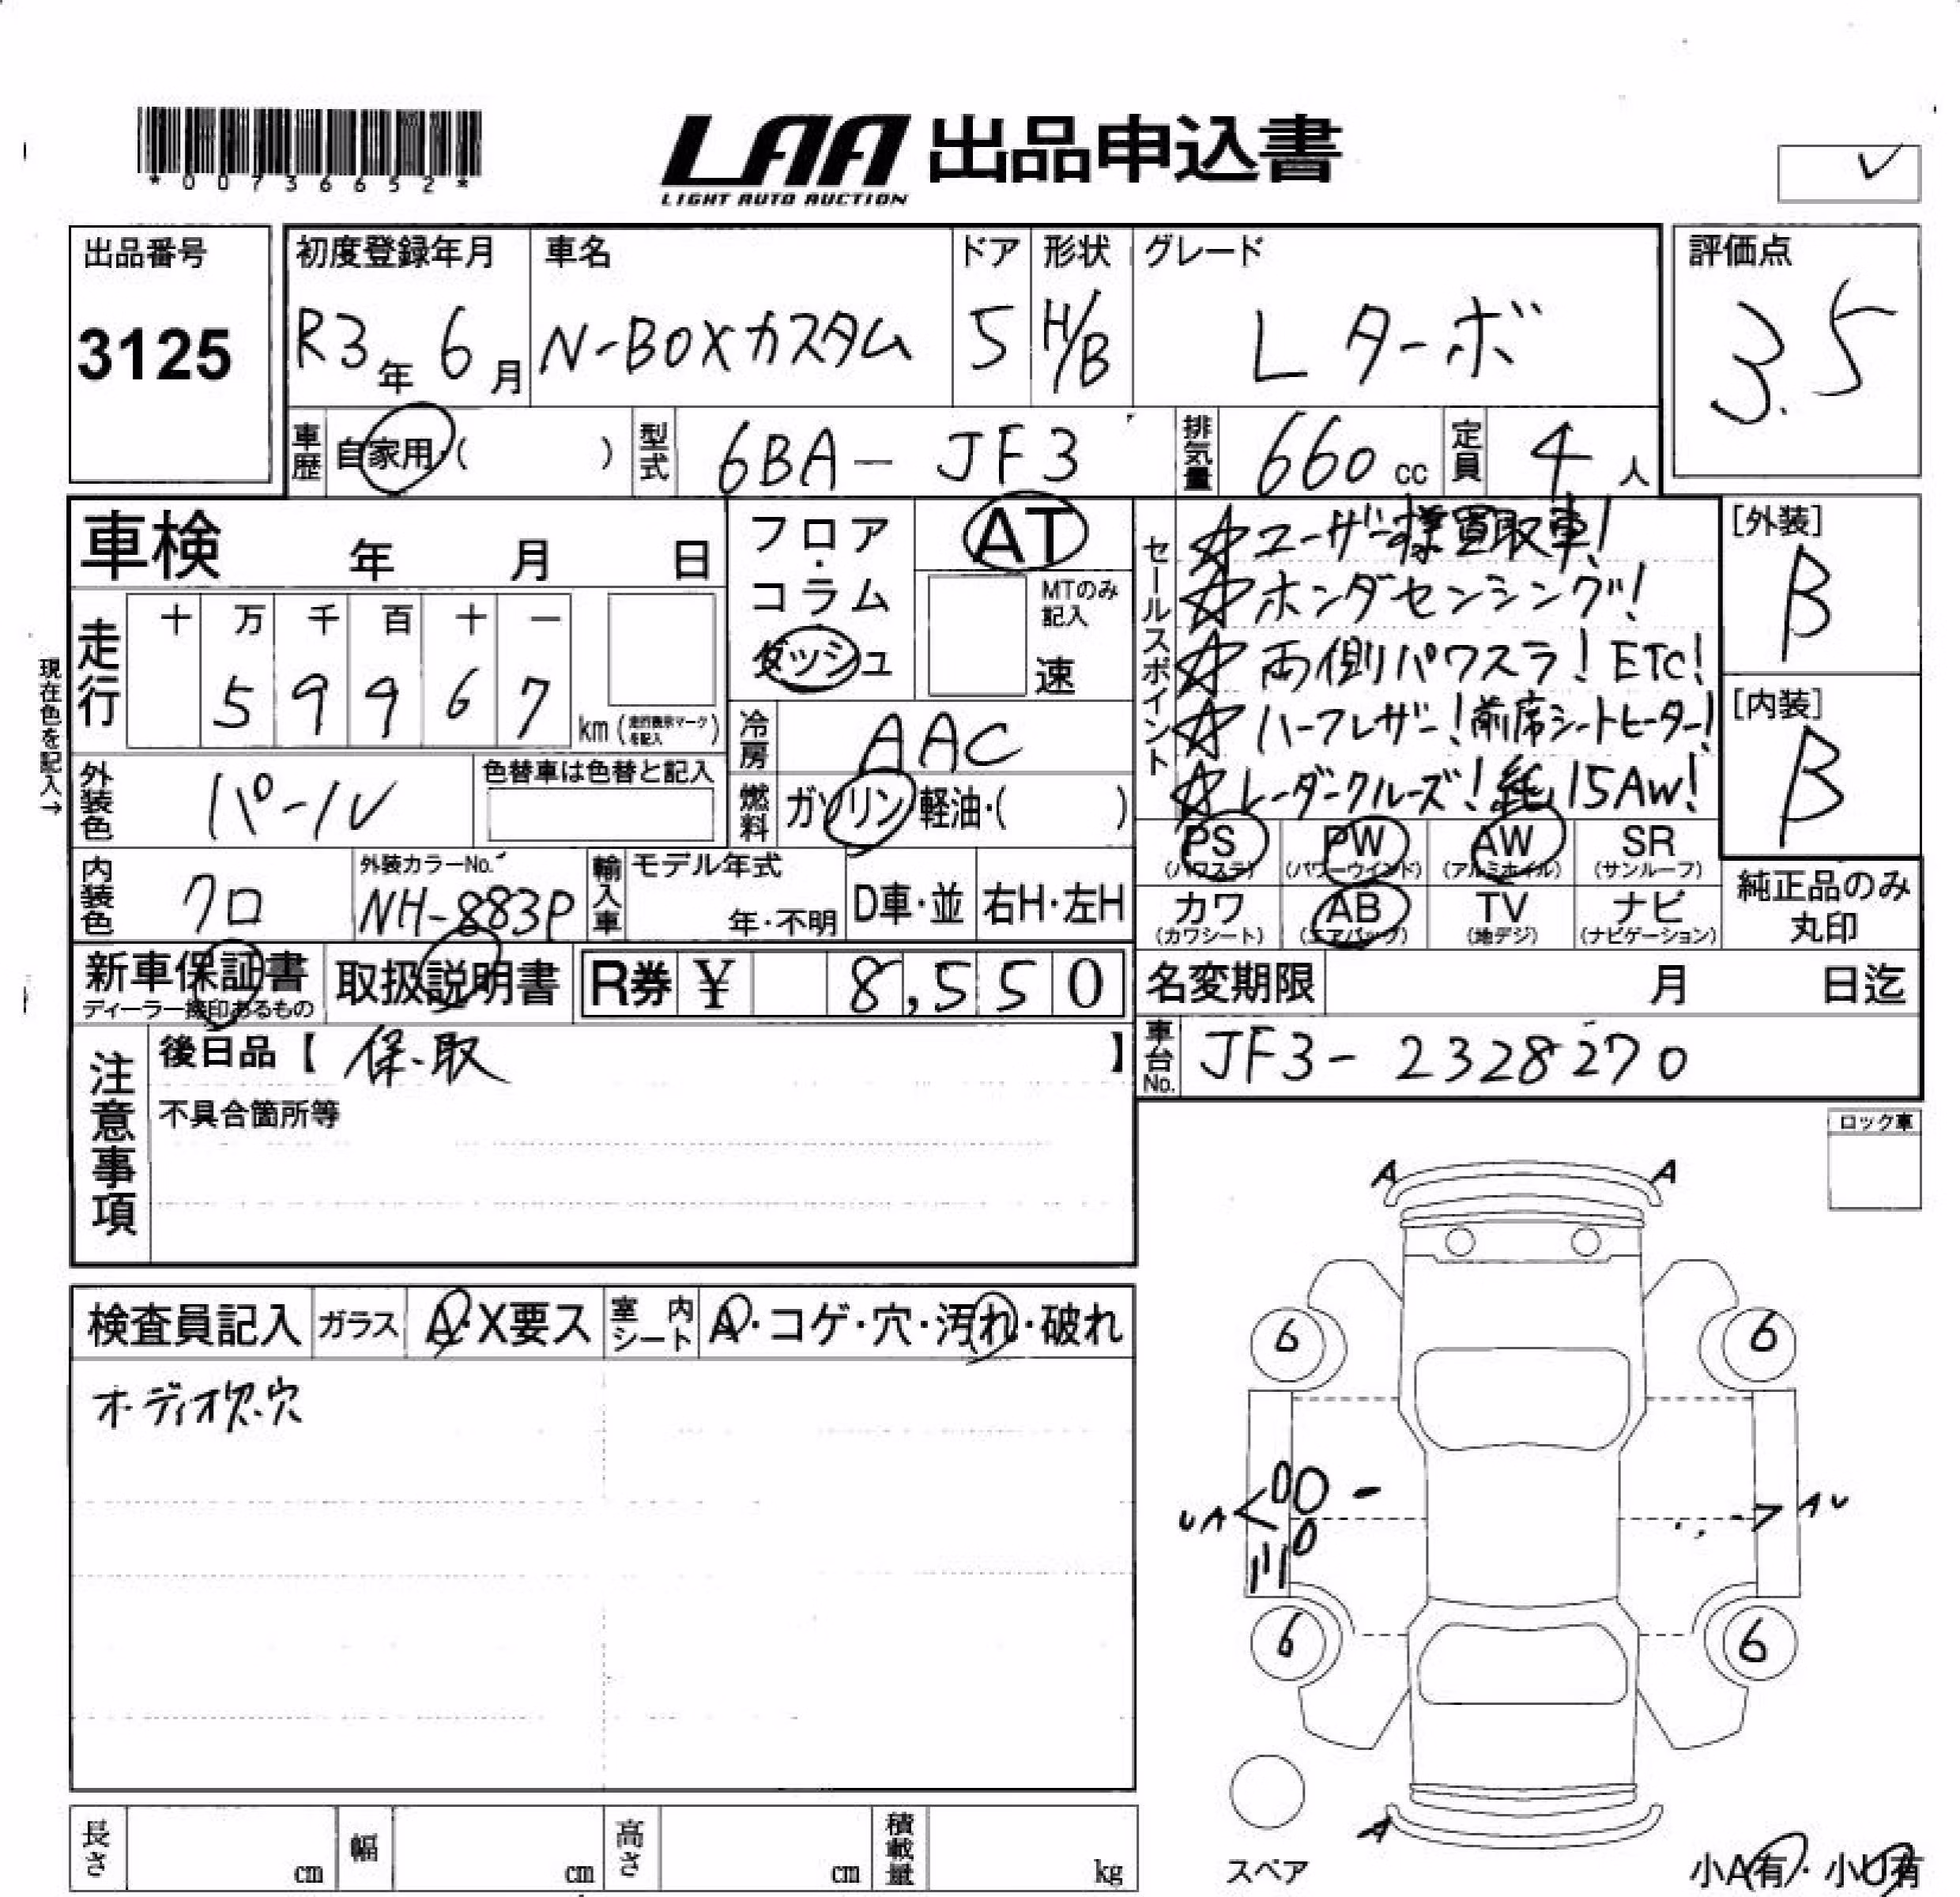 *00736652*
LAA 出品申込書
LIGHT AUTO AUCTION
✓
出品番号
3125
初度登録年月
R3年 6月
車名
N-BOXカスタム
ドア
5
形状
H/B
グレード
Lターボ
評価点
3.5
車歴
自家用・( )
型式
6BA-JF3
排気量
660 cc
定員
4人
車検 年 月 日
走行
十 万 千 百 十 一
5 9 9 6 7
km (走行表示マークを記入)
現在色を記入→
フロア・コラム
ダッシュ
AT
MTのみ記入
速
冷房
AAC
燃料
ガソリン 軽油・( )
セールスポイント
☆ユーザー様買取車!
☆ホンダセンシング!
☆両側パワスラ!ETC!
☆ハーフレザー!前席シートヒーター!
☆レーダークルーズ!純15AW!
[外装]
B
[内装]
B
外装色
パール
色替車は色替と記入
内装色
クロ
外装カラーNo.
NH-883P
輸入車
モデル年式
年・不明
D車・並
右H・左H
PS (パワステ)
PW (パワーウインド)
AW (アルミホイル)
SR (サンルーフ)
カワ (カワシート)
AB (エアバッグ)
TV (地デジ)
ナビ (ナビゲーション)
純正品のみ丸印
新車保証書
ディーラー捺印あるもの
取扱説明書
R券 ¥ 8,550
名変期限 月 日迄
車台No.
JF3-2328270
注意事項
後日品【 保・取 】
不具合箇所等
ロック車
検査員記入
ガラス
A・X要ス
室内シート
A・コゲ・穴・汚れ・破れ
オーディオ欠.穴
A A
6 6
UA< >AU
6 6
A
スペア
小A有・小U有
長さ cm
幅 cm
高さ cm
積載量 kg